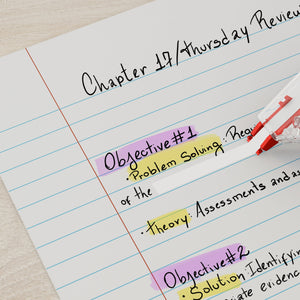 Chapter 17/Thursday Review
Objective #1
• Problem Solving:
of the
• Theory: Assessments and
Objective #2
• Solution Identifying